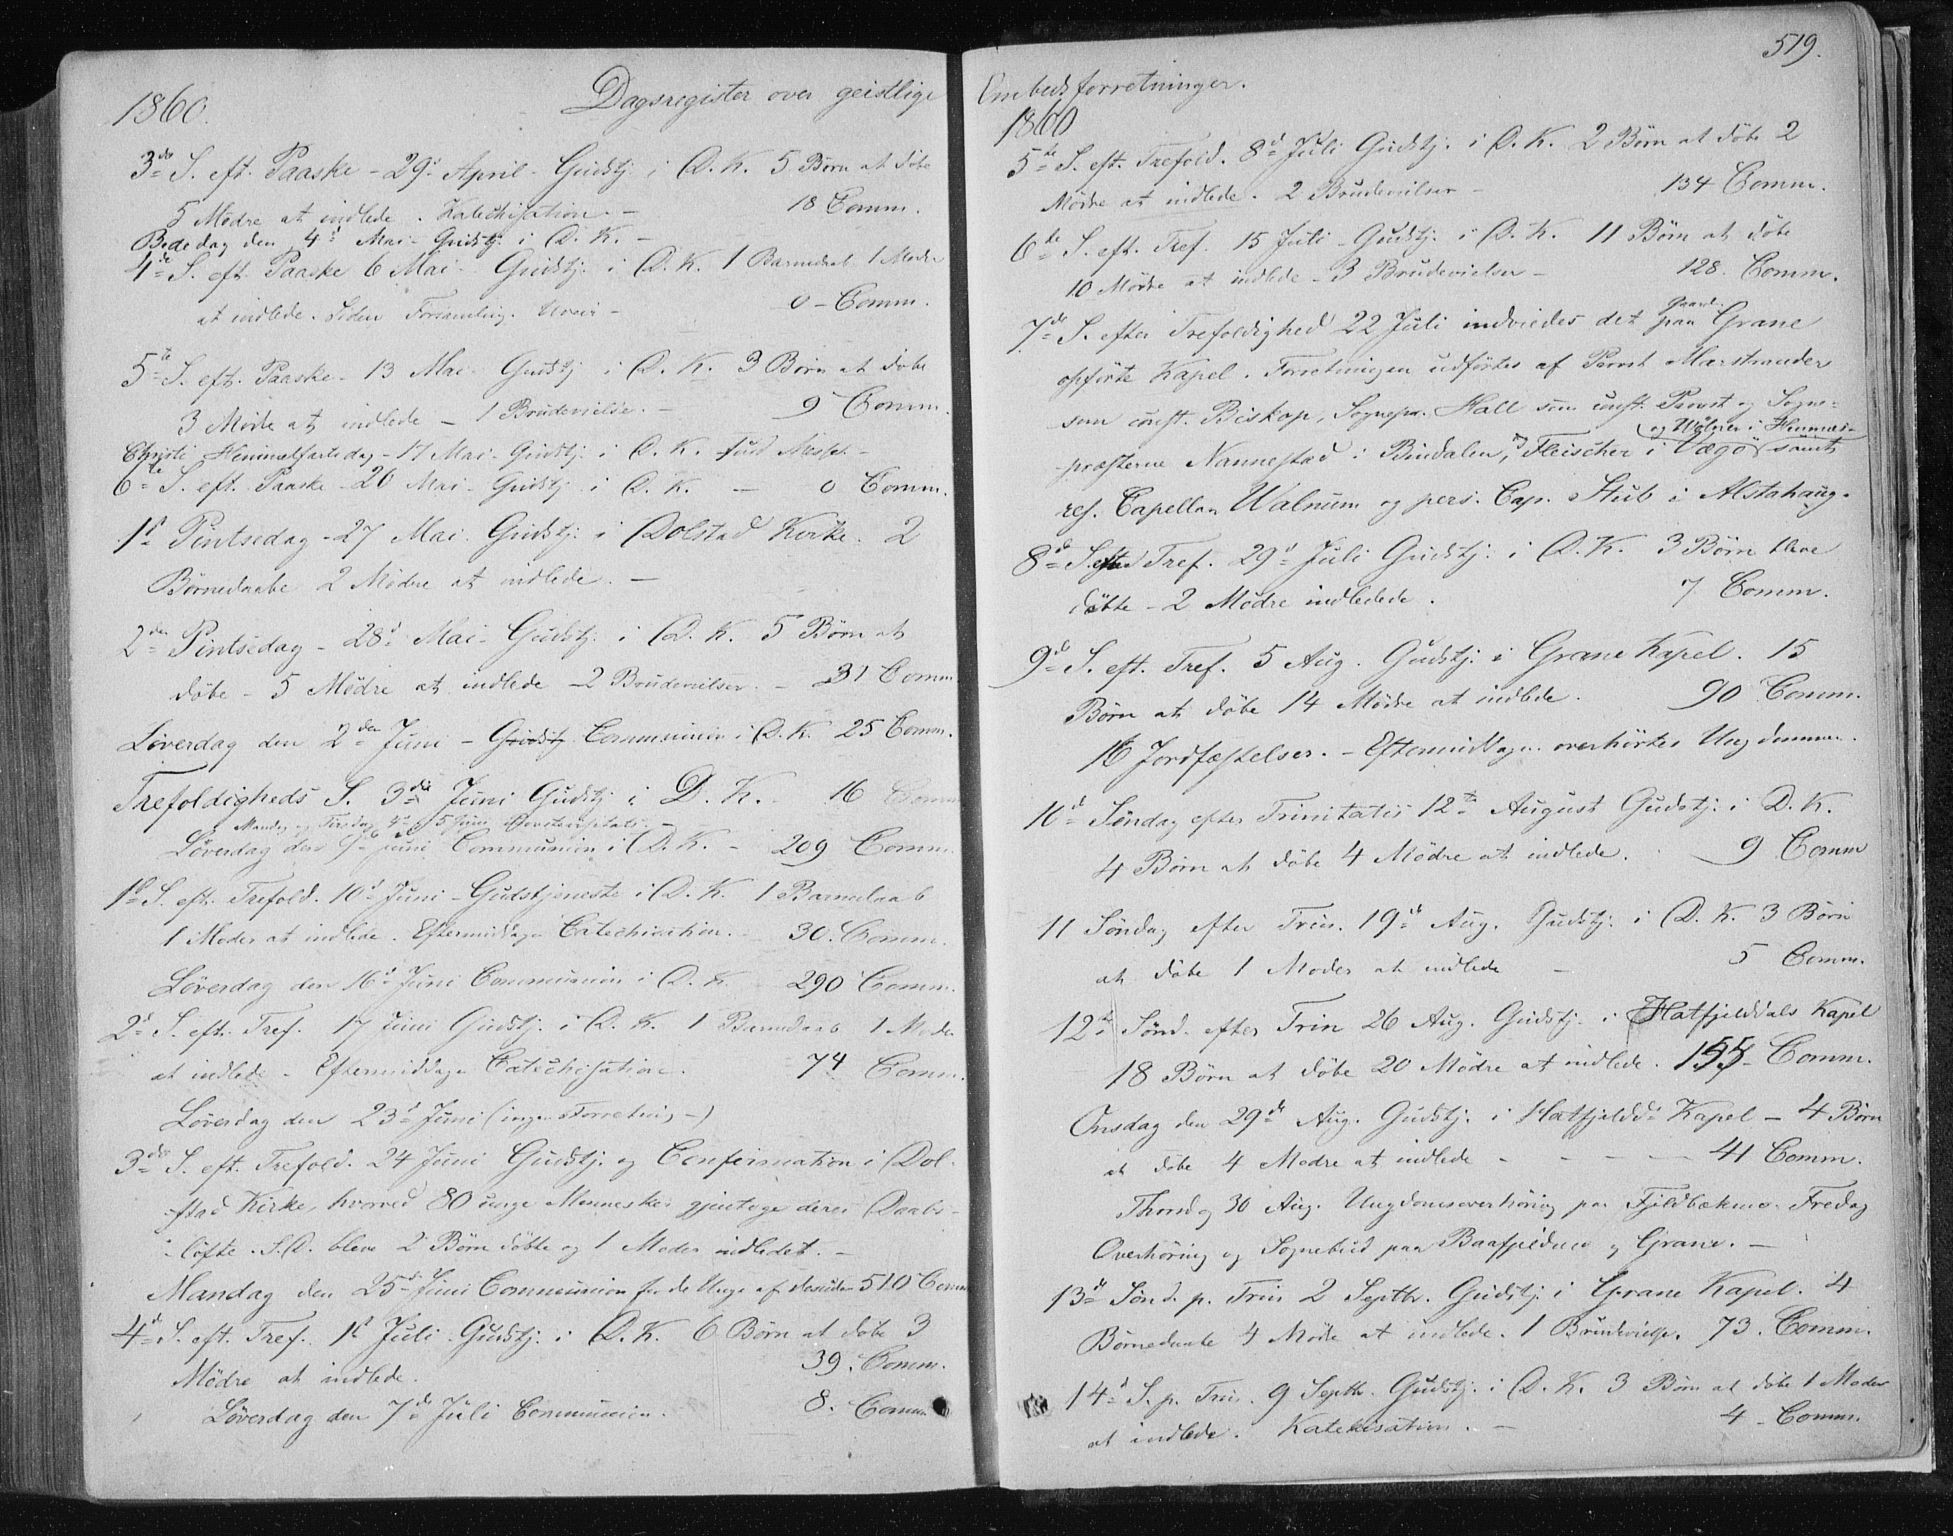 Dagsregister over geistlige
1860.
3die S. eft. Paaske - 29de April - Gudstj. i D. K. 5 Børn at døbe
5 Mødre at indlede. Katechisation. - 18 Comm.
Bededag den 4de Mai - Gudstj. i D. K. -
4de S. eft. Paaske 6 Mai - Gudstj. i D. K. 1 Barnedaab 1 Moder
at indlede. Siden Forsamling. Uveir - 0 - Comm.
5te S. eft. Paaske - 13 Mai - Gudstj. i D. K. 3 Børn at døbe
3 Mødre at indlede - 1 Brudevielse. - 9 Comm.
Christi Himmelfartsdag - 17 Mai - Gudstj. i D. K. Messef. -
6te S. eft. Paaske - 20 Mai - Gudstj. i D. K. - 0 Comm.
1ste Pintsedag - 27 Mai. Gudstj. i Dolstad Kirke. 2
Børnedaabe 2 Mødre at indlede. -
2den Pintsedag - 28de Mai - Gudstj. i D. K. 5 Børn at
døbe - 5 Mødre at indlede - 2 Brudevielser. - 31 Comm
Løverdag den 2den Juni - Gudstj. Communion i D. K. 25 Comm.
Trefoldigheds S. 3die Juni Gudstj. i D. K. - 16 Comm
Mandag og Tirsdag 4de og 5 Juni
Løverdag den 9de Juni Communion i D. K. - 209 Comm.
1ste S. eft. Trefold. 10de Juni - Gudstjeneste i D. K. 1 Barnedaab
1 Moder at indlede. Eftermiddags Catechisation. - 30. Comm.
Løverdag den 16de Juni Communion i D. K. 290 Comm.
2den S. eft. Tref. 17 Juni Gudstj. i D. K. 1 Barnedaab 1 Moder
at indlede - Eftermiddags Catechisation. 74 Comm.
Løverdag den 23de Juni (ingen Forretning -)
3die S. eft. Trefold. 24 Juni Gudstj. og Confirmation i Dol-
stad Kirke, hvorved 80 unge Mennesker gjentoge deres Daabs-
løfte. S.D. bleve 2 Børn døbte og 1 Moder indledet. -
Mandag den 25de Juni Communion for de Unge af desuden 510 Comm
4de S. eft. Tref. 1ste Juli Gudstj. i D. K. 6 Børn at døbe 3
Mødre at indlede. 39. Comm.
Løverdag den 7de Juli Communion. 8. Comm
519.
Embedsforretninger.
1860
5te S. eft. Trefold. 8de Juli Gudstj. i D. K. 2 Børn at døbe 2
Mødre at indlede. 2 Brudevielser - 134 Comm.
6te S. eft. Tref. 15 Juli - Gudstj. i D. K. 11 Børn at døbe
10 Mødre at indlede - 3 Brudevielser - 128. Comm.
7de S. efter Trefoldighed 22 Juli indviedes det paa Gaard Grane
opførte Kapel. Forretningen udførtes af Provst Marstrander
som const. Biskop, Sognepr. Hall som const. Provst og Sogne-
præsterne Nannestad i Bindalen, Fleischer i Vegø og Wolner i Hemnæs samt
res. Capellan Walnum og pers. Cap. Stub i Alstahaug.
8de S. efter Tref. 29de Juli Gudstj. i D. K. 3 Børn bleve
døbte - 2 Mødre indledede. 7 Comm.
9de S. eft. Tref. 5 Aug. Gudstj. i Grane Kapel. 15
Børn at døbe 14 Mødre at indlede. 90 Comm.
16 Jordfæstelser. - Eftermiddagen overhørtes Ungdommen.
10de Søndag efter Trinitatis 12te August Gudstj. i D. K.
4 Børn at døbe 4 Mødre at indlede. 9 Comm
11 Søndag efter Trin. 19de Aug. Gudstj. i D. K. 3 Børn
at døbe 1 Moder at indlede - 5 Comm.
12te Sønd. efter Trin 26 Aug. Gudstj. i Hatfjelddals Kapel
18 Børn at døbe 20 Mødre at indlede. 155 - Comm.
Onsdag den 29de Aug. Gudstj. i Hatfjeldds Kapel - 4 Børn
at døbe 4 Mødre at indlede - - - - 41 Comm.
Thorsdag 30 Aug. Ungdomsoverhøring paa Fjeldbækmo. Fredag
Overhøring og Sognebud paa Baafjeldmo og Grane. -
13de Sønd. p. Trin 2 Septbr. Gudstj. i Grane Kapel. 4
Børnedaabe 4 Mødre at indlede. 1 Brudevielse. 73. Comm.
14de S. p. Trin. 9 Septbr. Gudstj. i D. K. 3 Børn at døbe 1 Moder
at indlede. Katekisation. - 4 - Comm.